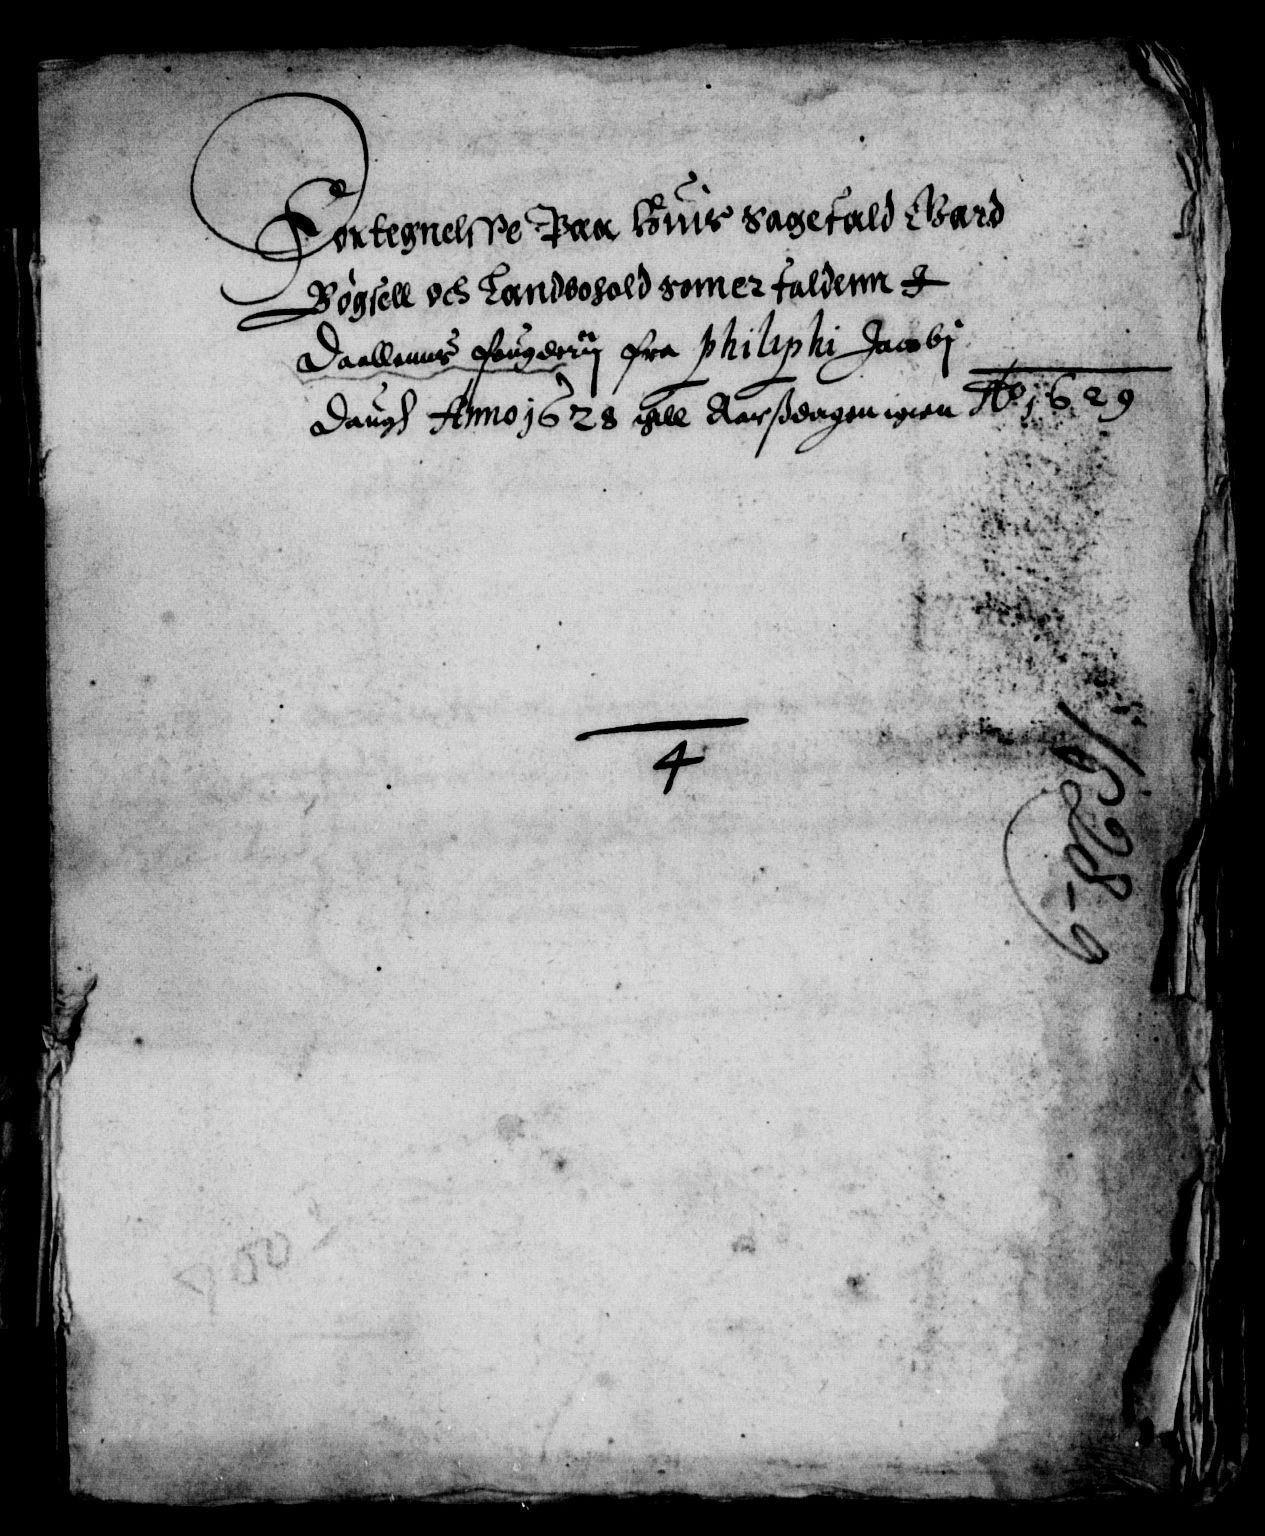 Fortegnelsse Paa huis sagefald Gaard
Bøgsell och Landbohold somer faldenn J
Daallernis fougderij fra Philiphi Jacobj
Daugh Anno 1628 till Aarsdagen igien Ao 1629
4
1628-9